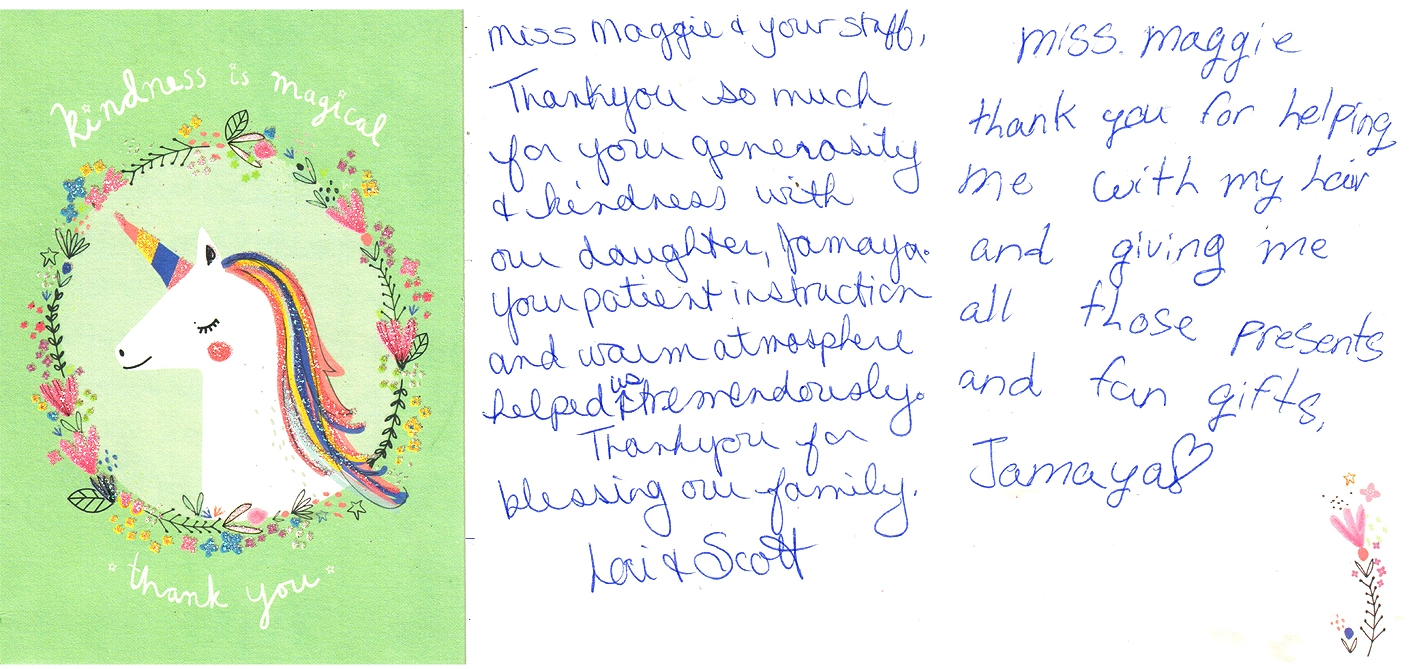 kindness is magical
thank you
miss Maggie & your staff,
Thankyou so much
for your generosity
& kindness with
our daughter, Jamaya.
Your patient instruction
and warm atmosphere
helped us tremendously.
Thankyou for
blessing our family.
Lori & Scott
miss. maggie
thank you for helping
me with my hair
and giving me
all those presents
and fun gifts,
Jamaya